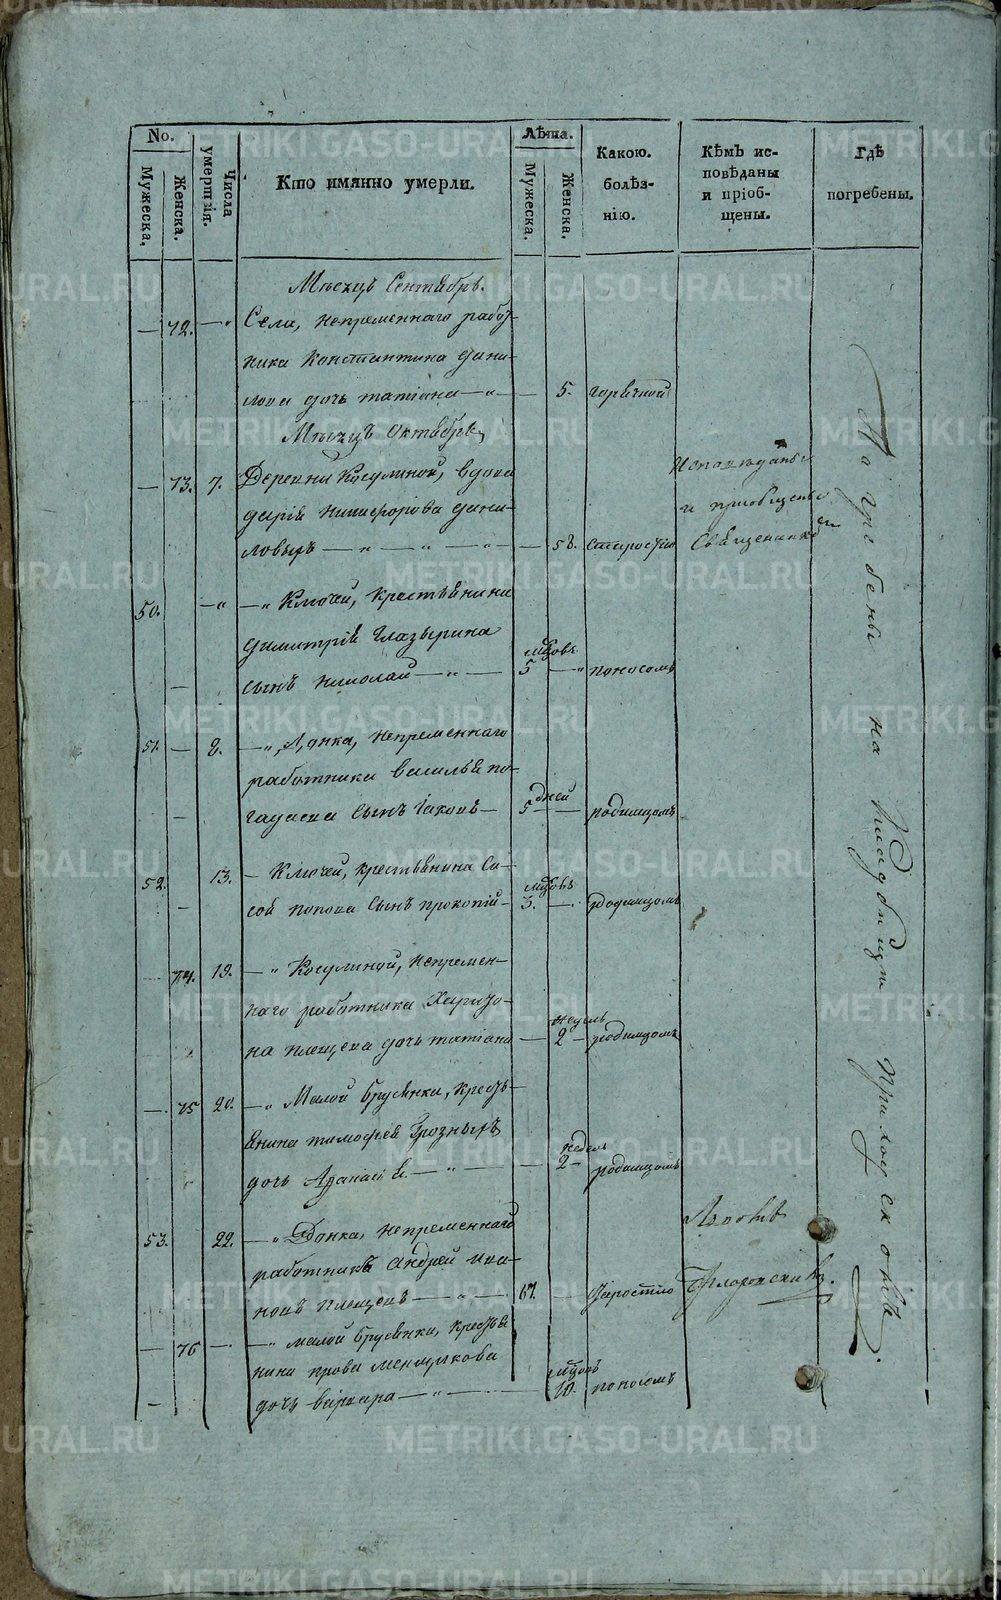 No.
Мужеска.
Женска.
Числа умертвія.
Кто имянно умерли.
Лѣта.
Мужеска.
Женска.
Какою болѣз-
нію.
Кѣмъ ис-
повѣданы
и пріоб-
щены.
Гдѣ
погребены.
Мѣсяцъ Сентябрь.
— 72. — „ Села, непременнаго работ-
ника Константина Дани-
лова дочь татіана — „ — 5. горячкой
Мѣсяцъ Октябрь
— 73. 7. Деревни Косулиной, вдова
дарія никифорова Дани-
ловыхъ — „ — „ — „ — 58. старостію
Исповѣданы
и пріобщены
Священникомъ
50. — „ — „ Ключей, крестьянина
Димитрія Глазырина
сынъ николай — „ — мцовъ 5 — „ поносомъ
51. — 8. — „ непременнаго
работника василья по-
сынъ Іаковъ — дней 5 — родимцомъ
52. — 13. — Ключей, крестьянина Сы-
соя попова сынъ прокопій — мцовъ 3. — родимцомъ
74. 19. — „ Косулиной, непремен-
наго работника Харито-
на плещева дочь татіана — недель 2 — родимцомъ
— 75 20. — „ Малой Брусянки, крест-
янина тимофея Грозныхъ
дочь Афанасія — „ — недель 2 — родимцомъ
53. 22. — „ непременнаго
работникъ андрей ива-
новъ плещевъ — „ — 67. — старостію
Іаковъ
Флоровскимъ.
— 76 — — „ малой Брусянки, крестья
нина прова меншикова
дочь варвара — „ — мцовъ 10. поносомъ
Погребены на Кладбищѣ Приходскомъ.
METRIKI.GASO-URAL.RU